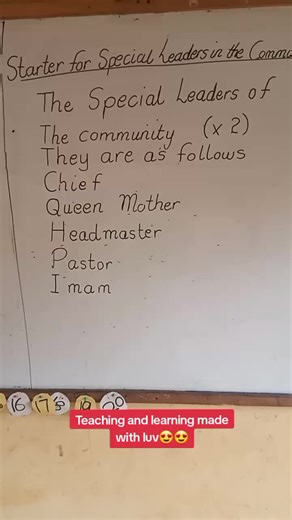 Starter for Special Leaders in the Commu
The Special Leaders of
The community (x2)
They are as follows
Chief
Queen Mother
Headmaster
Pastor
Imam
16 17 19 20
Teaching and learning made
with luv😍😍